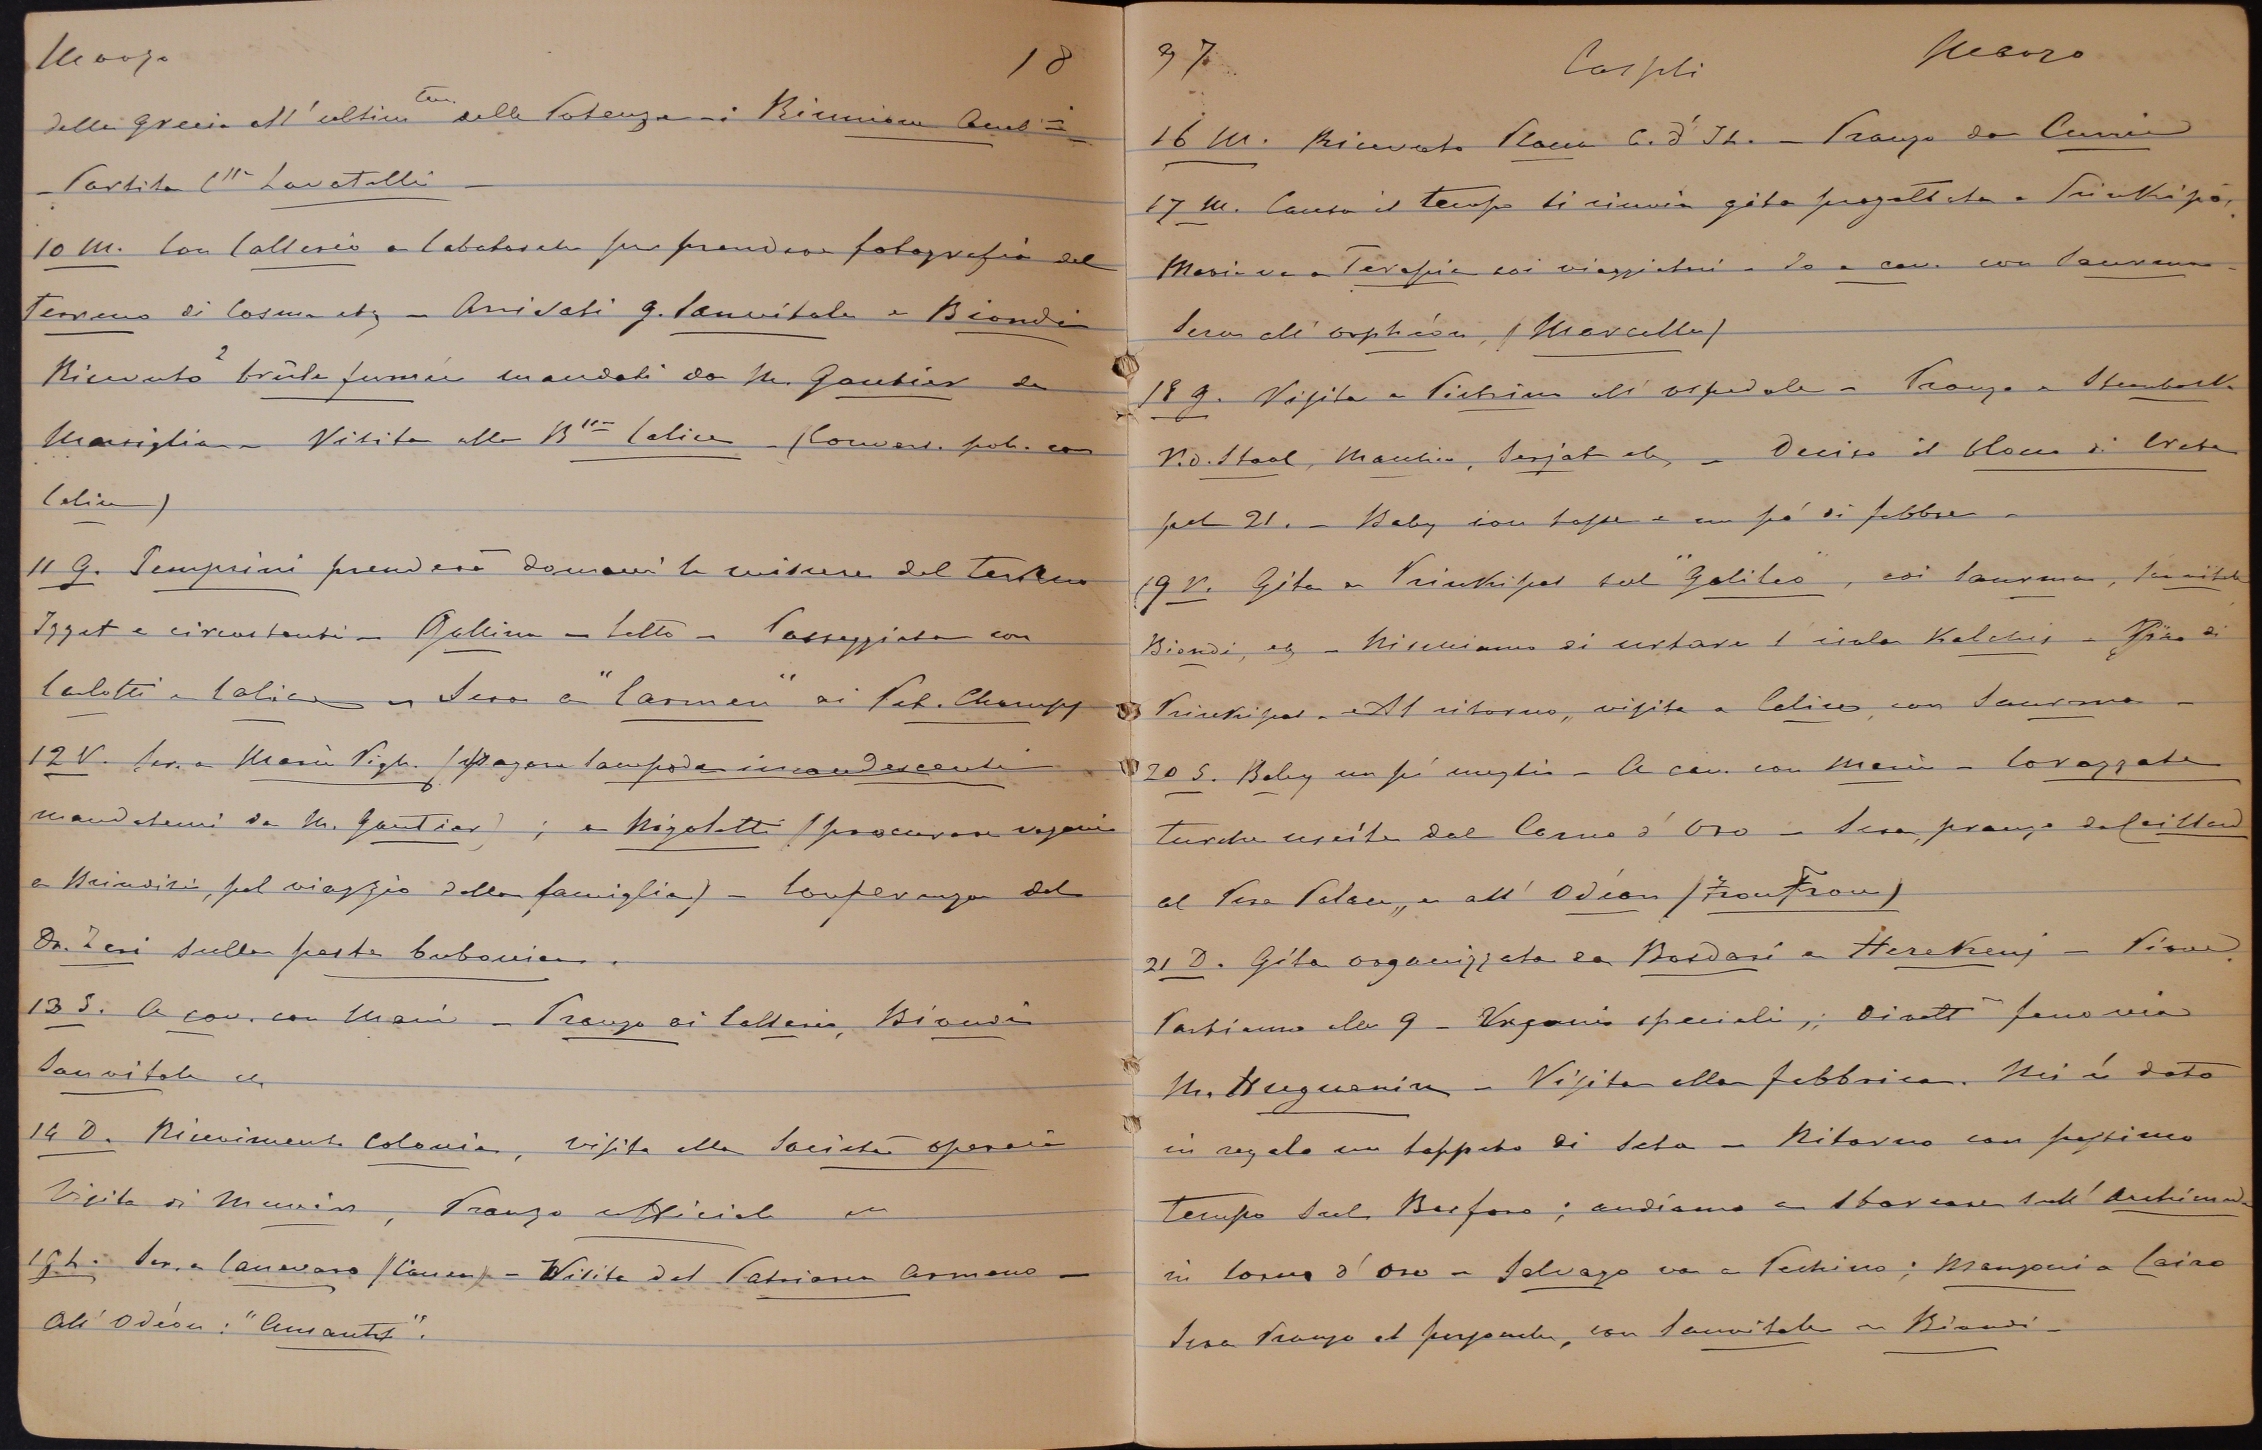 Marzo 18
della Grecia all'ultimtum delle Potenze - Riunione Amb.i
- Partita C.ssa Lovatelli -
10 M. Con Calleric a Cabatasch per prendere fotografia del
terreno di Cosma etz - Arrivati g. Sanvitale e Biondi
Ricevuto 2 brûle fumée mandati da M. Gautier da
Marsiglia - Visita alla B.ssa Calice - (Convers. pol. con
Calice)
11 G. Semprini prenderà domani le misure del terreno
Izzet e circostanti - Gallina - letto - Passeggiata con
Carlotti e Calice - Sera a "Carmen" ai Pet. Champs
12 V. Scr. a Mario Vigl. (pagare lampada incandescente
mandatemi da M. Gautier) ; a Rigoletti (procurare vagoni
a Brindisi, pel viaggio della famiglia) - Conferenza del
Dr. Zeri sulla peste bubonica.
13 S. A cav. con Maria - Pranzo ai Calleric, Biondi
Sanvitale etz
14 D. Ricevimento Colonia, visita alla Società operaia
Visita di Munir, Pranzo ufficiale
15 L. Scr. a Canevaro (Canea) - Visita del Patriarca Armeno -
All' Odéon: "Amants".
37 Cospli Marzo
16 M. Ricevuto C. d'It. - Pranzo da Currie
17 M. Causa il tempo si rinvia gita progettata a Prinkipò,
Maria va a Terapia coi viaggiatori - Io a cav. con Saurma -
Sera all' orphéon, (Marcella)
18 G. Visita a all' ospedale - Pranzo a Steinbock
V. d. Staal, etz - Deciso il blocco di Creta
pel 21. - Baby con tosse e un pò di febbre -
19 V. Gita a Prinkipò sul "Galileo", coi Saurma, Sanvitale
Biondi, etz - Rischiamo di urtare l'isola Kalchis - Giro di
Prinkipò - Al ritorno, visita a Calice, con Saurma -
20 S. Baby un pò meglio - A cav. con Maria - Corazzate
turche uscite dal Corno d'Oro - Sera, pranzo da Caillard
al Pera Palace, e all' Odéon (Froufrou)
21 D. Gita organizzata da Bosdari a Herekeuj - Piove.
Partiamo alle 9 - Vagoni speciali; Dirett ferrovia
M. Huguenin - Visita alla fabbrica. Mi è dato
in regalo un tappeto di seta - Ritorno con pessimo
tempo sul Bosforo; andiamo a sbarcare sull' Archimede
in Corno d'Oro - Salvago va a Pechino; Manzoni a Cairo
Sera Pranzo al personale, con Sanvitale e Biondi -